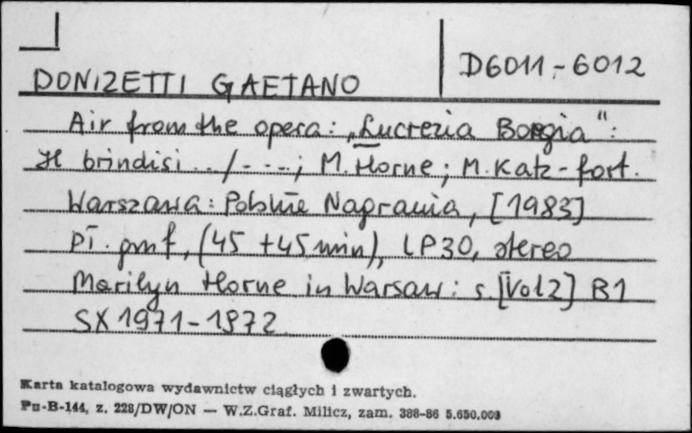 D6011-6012
DONIZETTI GAETANO
Air from the opera: „Lucrezia Borgia":
Il brindisi .../----; M. Horne; M. Katz - fort.
Warszawa: Polskie Nagrania, [1983]
Pł. gmf, (45 +45 min), LP30, stereo
Marilyn Horne in Warsaw: s. [Vol2] B1
SX 1971-1972
Karta katalogowa wydawnictw ciągłych i zwartych.
Pu-B-144, z. 228/DW/ON — W.Z.Graf. Milicz, zam. 388-86 5.650.000